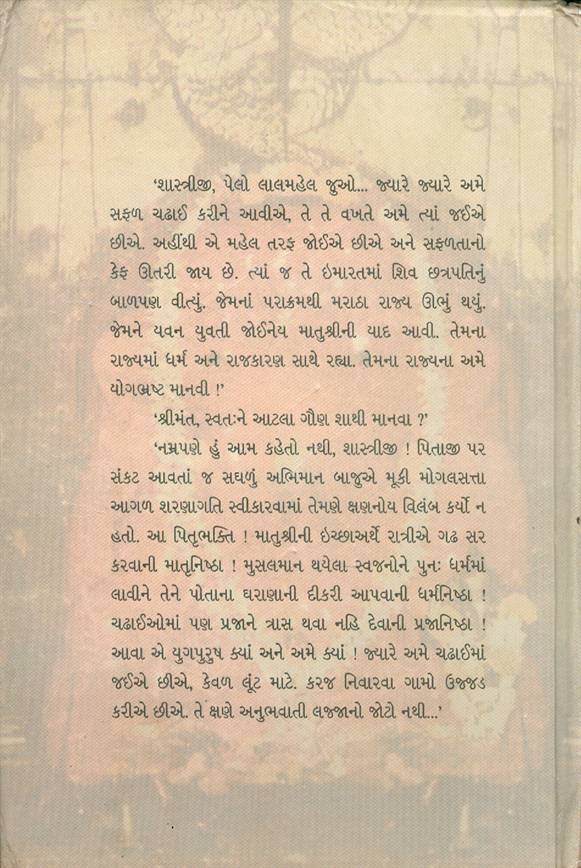 ‘શાસ્ત્રીજી, પેલો લાલમહેલ જુઓ... જ્યારે જ્યારે અમે
સફળ ચઢાઈ કરીને આવીએ, તે તે વખતે અમે ત્યાં જઈએ
છીએ. અહીંથી એ મહેલ તરફ જોઈએ છીએ અને સફળતાનો
કેફ ઊતરી જાય છે. ત્યાં જ તે ઇમારતમાં શિવ છત્રપતિનું
બાળપણ વીત્યું. જેમનાં પરાક્રમથી મરાઠા રાજ્ય ઊભું થયું.
જેમને યવન યુવતી જોઈનેય માતુશ્રીની યાદ આવી. તેમના
રાજ્યમાં ધર્મ અને રાજકારણ સાથે રહ્યા. તેમના રાજ્યના અમે
યોગભ્રષ્ટ માનવી !’
‘શ્રીમંત, સ્વતઃને આટલા ગૌણ શાથી માનવા ?’
‘નમ્રપણે હું આમ કહેતો નથી, શાસ્ત્રીજી ! પિતાજી પર
સંકટ આવતાં જ સઘળું અભિમાન બાજુએ મૂકી મોગલસત્તા
આગળ શરણાગતિ સ્વીકારવામાં તેમણે ક્ષણનોય વિલંબ કર્યો ન
હતો. આ પિતૃભક્તિ ! માતુશ્રીની ઇચ્છાઅર્થે રાત્રીએ ગઢ સર
કરવાની માતૃનિષ્ઠા ! મુસલમાન થયેલા સ્વજનોને પુનઃ ધર્મમાં
લાવીને તેને પોતાના ઘરાણાની દીકરી આપવાની ધર્મનિષ્ઠા !
ચઢાઈઓમાં પણ પ્રજાને ત્રાસ થવા નહિ દેવાની પ્રજાનિષ્ઠા !
આવા એ યુગપુરુષ ક્યાં અને અમે ક્યાં ! જ્યારે અમે ચઢાઈમાં
જઈએ છીએ, કેવળ લૂંટ માટે. કરજ નિવારવા ગામો ઉજ્જડ
કરીએ છીએ. તે ક્ષણે અનુભવાતી લજ્જાનો જોટો નથી...’